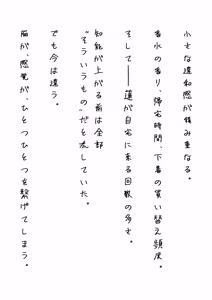 小さな違和感が積み重なる。
香水の香り、帰宅時間、下着の買い替え頻度。
そして――蓮が自宅に来る回数の多さ。
知能が上がる前は全部
“そういうもの”だと流していた。
でも今は違う。
脳が、感覚が、ひとつひとつを繋げてしまう。